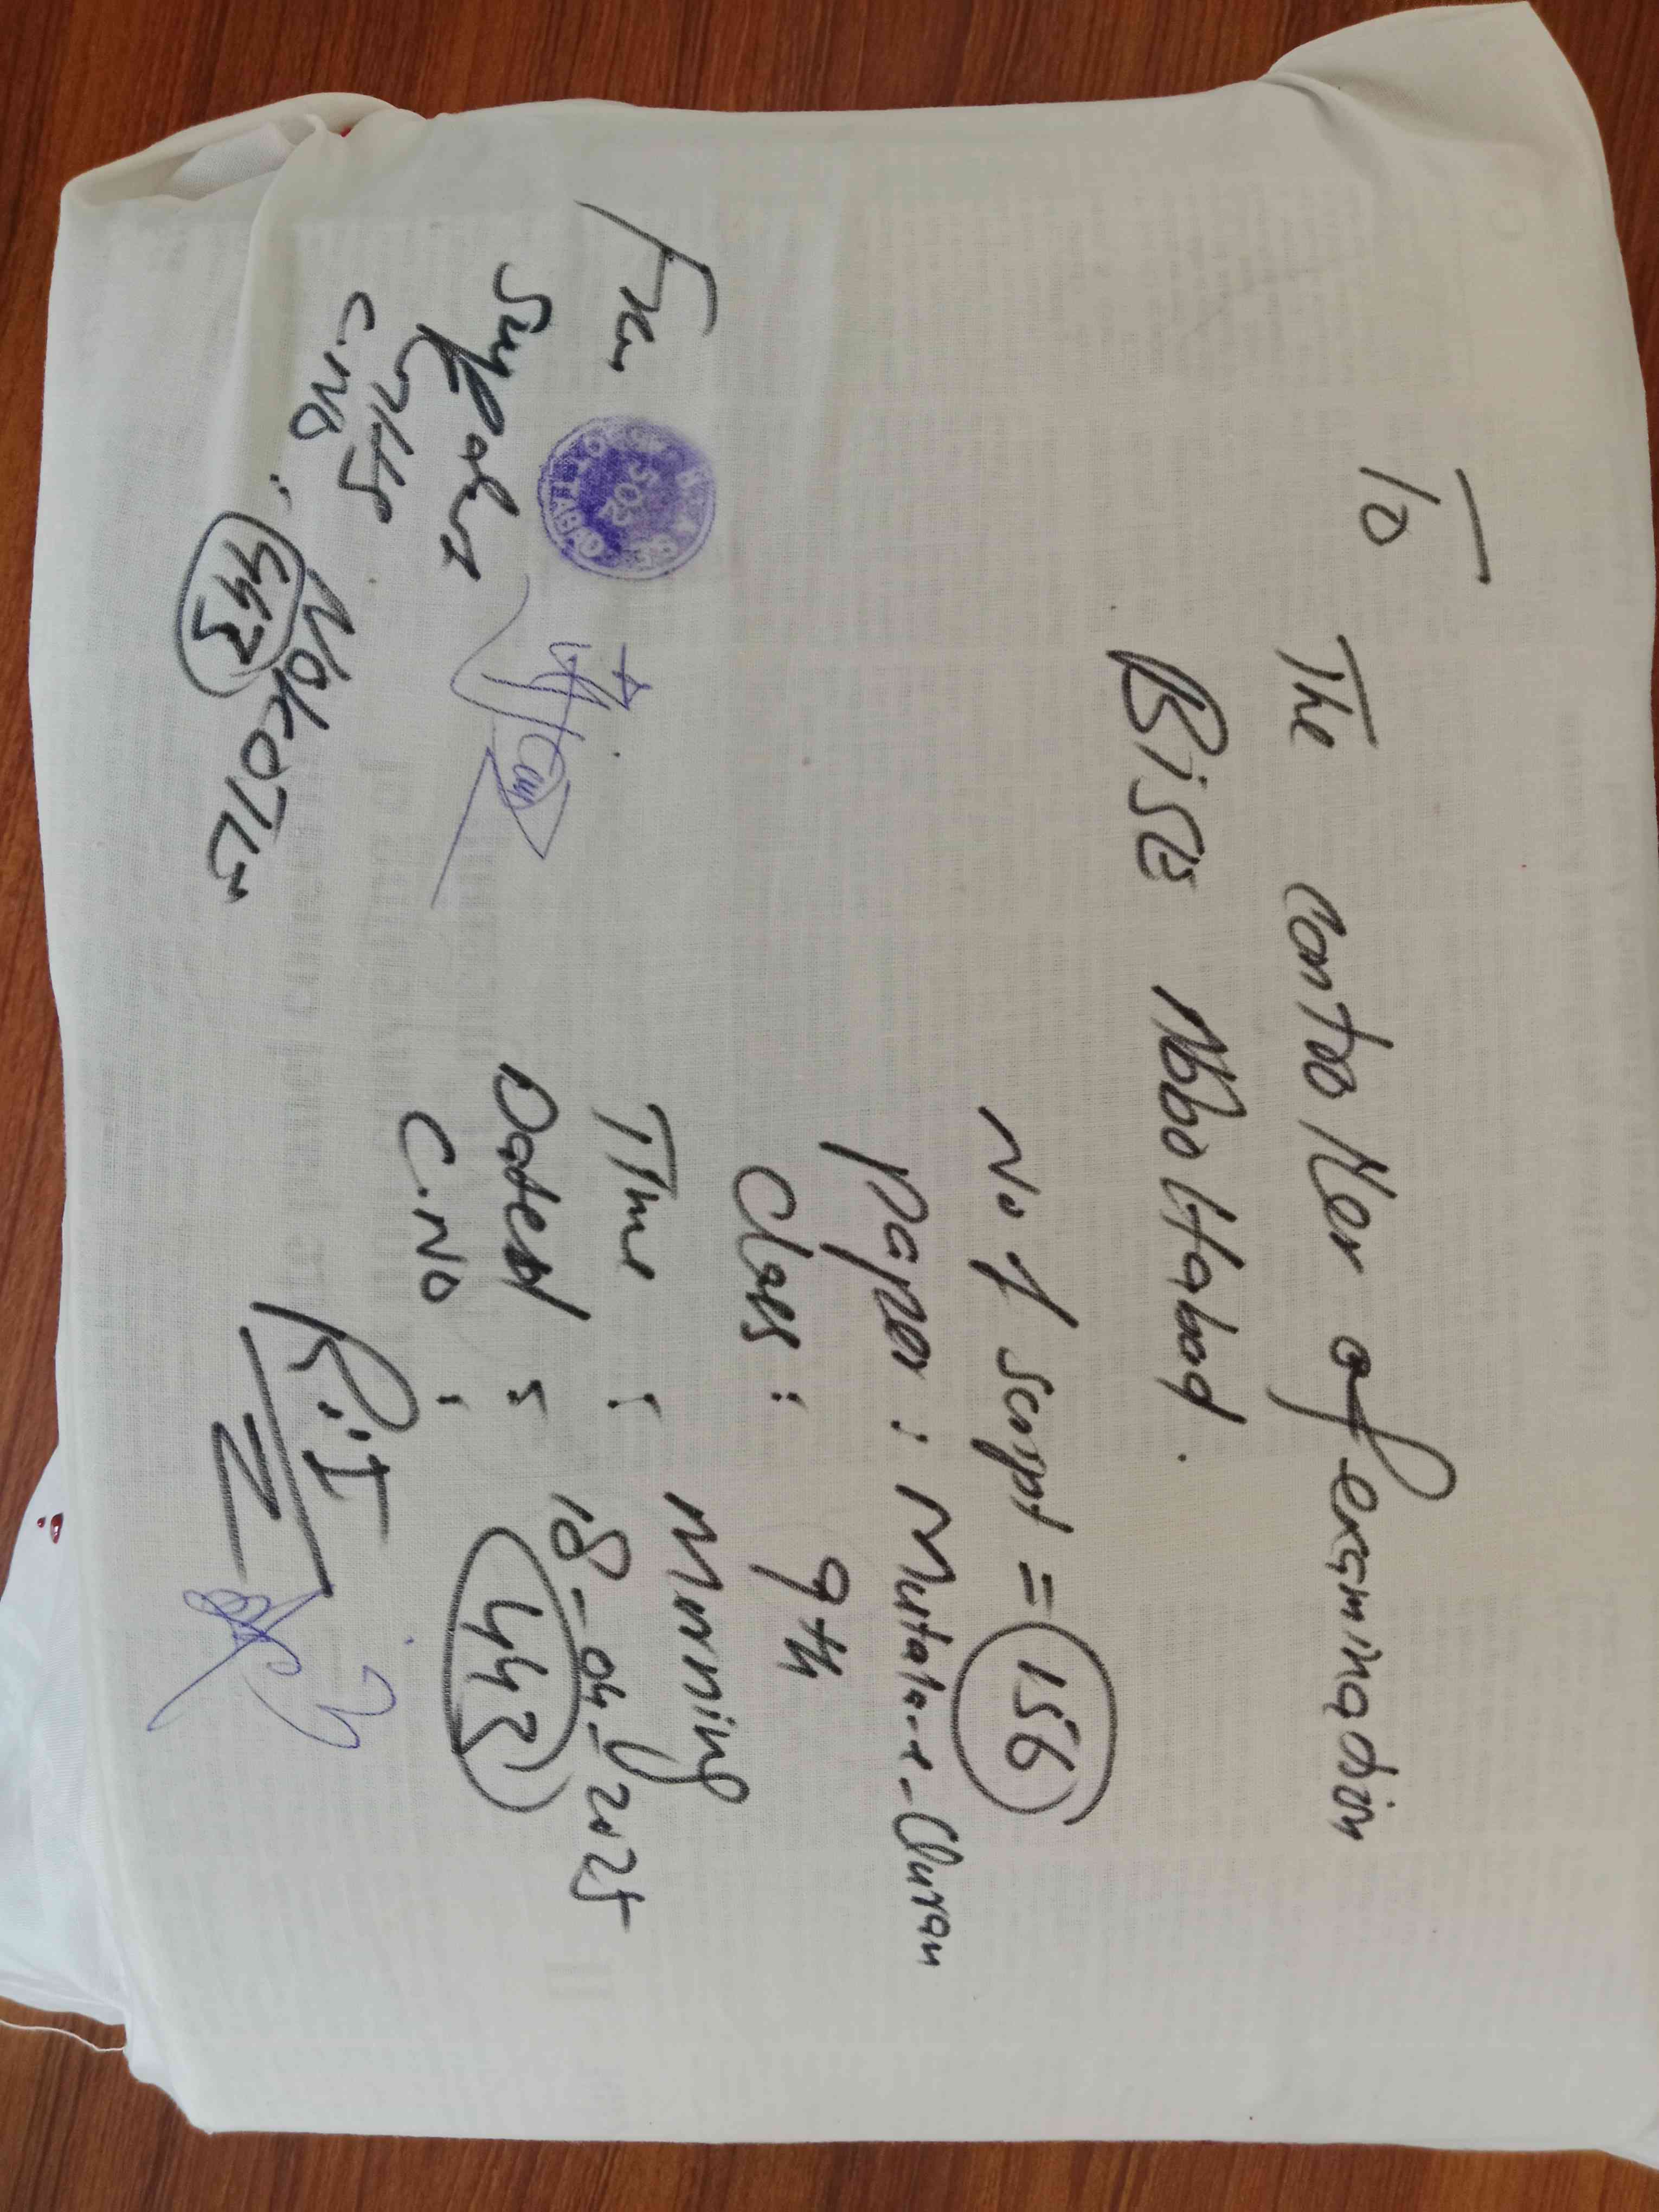 To
The Controller of examination
BISE Abbottabad.
No of script = 156
Paper : Mutala-e-Quran
Class : 9th
Time : Morning
Dated : 18-04-2025
C.NO : 443
R.I
From
C.NO : 443